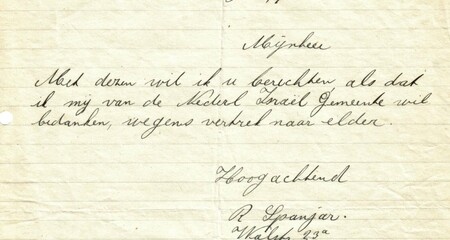 Mijnheer
Met dezen wil ik u berichten als dat
ik mij van de Nederl Israël Gemeente wil
bedanken, wegens vertrek naar elder.
Hoogachtend
R Spanjar.
Walstr 23a